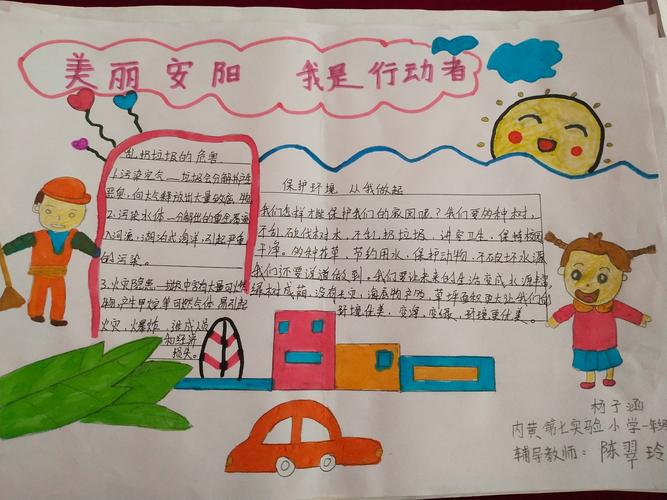 美丽安阳 我是行动者
乱扔垃圾的危害
1.污染空气——垃圾会分解或产生
恶臭,向大气释放出大量致病 物
2.污染水体——分解出的重金属流
入河流,湖泊或海洋,引起严重
的污染。
3.火灾隐患——垃圾中含有大量可燃
物,产生甲烷等可燃气体 易引起
火灾,火爆炸,造成人员
和经济
损失。
保护环境 从我做起
我们怎样才能保护我们的家园呢?我们要多种树,
不乱砍伐树木,不乱扔垃圾,讲究卫生,保持校园
干净。多种花草,节约用水,保护动物,不破坏水源
我们还要说道做到,我们要让未来的生活变成水源丰富
绿树成荫,没有天灾,海底物产 为,草坪面积更大让我们的
环境优美,变净,变绿,环境更优美。
杨子涵
内黄第七实验小学一年级
辅导教师:陈翠玲